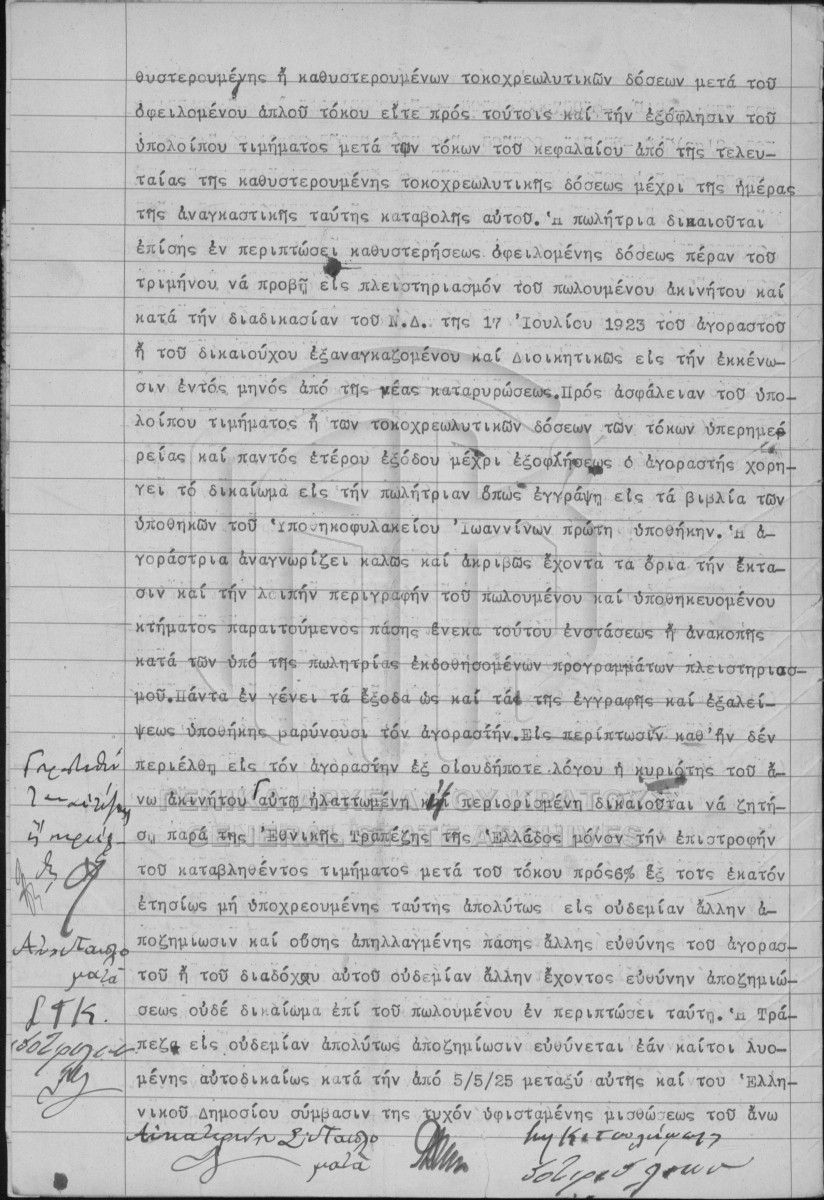 θυστερουμένης ἤ καθυστερουμένων τοκοχρεωλυτικῶν δόσεων μετά τοῦ
ὀφειλομένου ἁπλοῦ τόκου εἴτε πρός τούτοις καί τήν ἐξόφλησιν τοῦ
ὑπολοίπου τιμήματος μετά των τόκων τοῦ κεφαλαίου ἀπό τῆς τελευ-
ταίας τῆς καθυστερουμένης τοκοχρεωλυτικῆς δόσεως μέχρι τῆς ἡμέρας
τῆς ἀναγκαστικῆς ταύτης καταβολῆς αὐτοῦ. Ἡ πωλήτρια δικαιοῦται
ἐπίσης ἐν περιπτώσει καθυστερήσεως ὀφειλομένης δόσεως πέραν τοῦ
τριμήνου νά προβῇ εἰς πλειστηριασμόν τοῦ πωλουμένου ἀκινήτου καί
κατά τήν διαδικασίαν τοῦ Ν.Δ. τῆς 17 Ἰουλίου 1923 τοῦ ἀγοραστοῦ
ἤ τοῦ δικαιούχου ἐξαναγκαζομένου καί Διοικητικῶς εἰς τήν ἐκκένω-
σιν ἐντός μηνός ἀπό τῆς νέας καταρυρώσεως.Πρός ἀσφάλειαν τοῦ ὑπο-
λοίπου τιμήματος ἤ των τοκοχρεωλυτικῶν δόσεων τῶν τόκων ὑπερημε
ρείας καί παντός ἑτέρου ἐξόδου μέχρι ἐξοφλήσεως ὁ ἀγοραστής χορη-
γεῖ τό δικαίωμα εἰς τήν πωλήτριαν ὅπως ἐγγράψῃ εἰς τά βιβλία τῶν
ὑποθηκῶν τοῦ Ὑποθηκοφυλακείου Ἰωαννίνων πρώτη ὑποθήκην. Ἡ ἀ-
γοράστρια ἀναγνωρίζει καλῶς καί ἀκριβῶς ἔχοντα τα ὅρια τήν ἔκτα-
σιν καί τήν λοιπήν περιγραφήν τοῦ πωλουμένου καί ὑποθηκευομένου
κτήματος παραιτούμενος πάσης ἕνεκα τούτου ἐνστάσεως ἤ ἀνακοπῆς
κατά τῶν ὑπό τῆς πωλητρίας ἐκδοθησομένων προγραμμάτων πλειστηριασ-
μοῦ.Πάντα ἐν γένει τά ἔξοδα ὡς καί τά τῆς ἐγγραφῆς καί ἐξαλεί-
ψεως ὑποθήκης μαρύνουσι τόν ἀγοραστήν.Εἰς περίπτωσιν καθ'ἥν δέν
περιέλθῃ εἰς τόν ἀγοραστήν ἐξ οἱουδήποτε λόγου ἡ κυριότης τοῦ ἄ-
νω ἀκινήτου αὕτω ἠλαττωμένη ἤ περιορισμένη δικαιοῦται νά ζητή-
σῃ παρά τῆς Ἐθνικῆς Τραπέζης τῆς Ἑλλάδος μόνον τήν ἐπιστροφήν
τοῦ καταβληθέντος τιμήματος μετά τοῦ τόκου πρός6% ἕξ τοῖς ἑκατόν
ἐτησίως μή ὑποχρεουμένης ταύτης ἀπολύτως εἰς οὐδεμίαν ἄλλην ἀ-
ποζημίωσιν καί οὔσης ἀπηλλαγμένης πάσης ἄλλης εὐθύνης τοῦ ἀγορασ-
τοῦ ἤ τοῦ διαδόχου αὐτοῦ οὐδεμίαν ἄλλην ἔχοντος εὐθύνην ἀποζημιώ-
σεως οὐδέ δικαίωμα ἐπί τοῦ πωλουμένου ἐν περιπτώσει ταύτῃ. Ἡ Τρά-
πεζα εἰς οὐδεμίαν ἀπολύτως ἀποζημίωσιν εὐθύνεται ἐάν καίτοι λυο-
μένης αὐτοδικαίως κατά τήν ἀπό 5/5/25 μεταξύ αὐτῆς καί τοῦ Ἑλλη-
νικοῦ Δημοσίου σύμβασιν της τυχόν ὑφισταμένης μισθώσεως τοῦ ἄνω